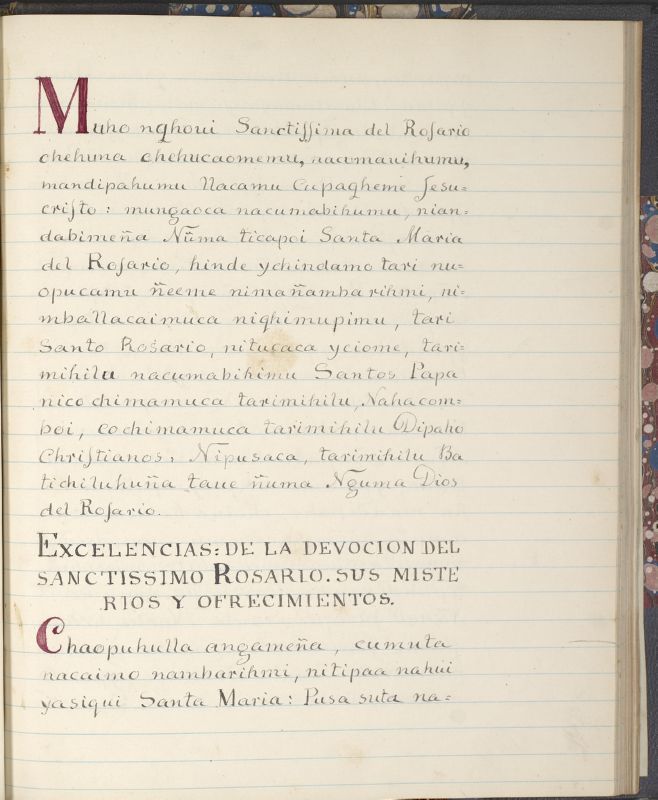 Muho nqhoui Sanctiſſima del Roſario
chehuna chehucaomemu, nacumauihumu,
mandipahumu Nacamu Cupagheme Jesu=
criſto: mungaoca nacumabihumu, nian=
dabimeña Nũma ticapoi Santa Maria
del Roſario, hinde ychindamo tari nu=
opucamu ñeeme nimañambarihmi, ni=
mballacaimuca niqhimupimu, tari
Santo Rosario, nitucaca yciome, tari=
mihilu nacumabihimu Santos Papa
nico chimamuca tarimihilu, Nahacom=
boi, cochimamuca tarimihilu Dipaho
Chriſtianos, Nipusaca, tarimihilu Ba
tichiluhuña taue ñuma Nguma Dios
del Roſario.
EXCELENCIAS: DE LA DEVOCION DEL
SANCTISSIMO ROSARIO. SUS MISTE
RIOS Y OFRECIMIENTOS.
Chaopuhulla angameña, cumuta
nacaimo nambarihmi, nitipaa nahui
yasiqui Santa Maria: Pusa suta na=